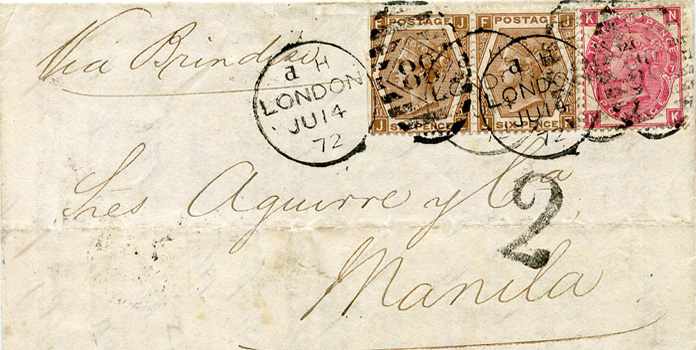 Via Brindisi
POSTAGE POSTAGE
SIX PENCE SIX PENCE
F J F J K N
J J N K
d H
LONDON
JU 14
72
88
d
LONDON
JU 14
72
Sres Aguirre y Cia
2
Manila